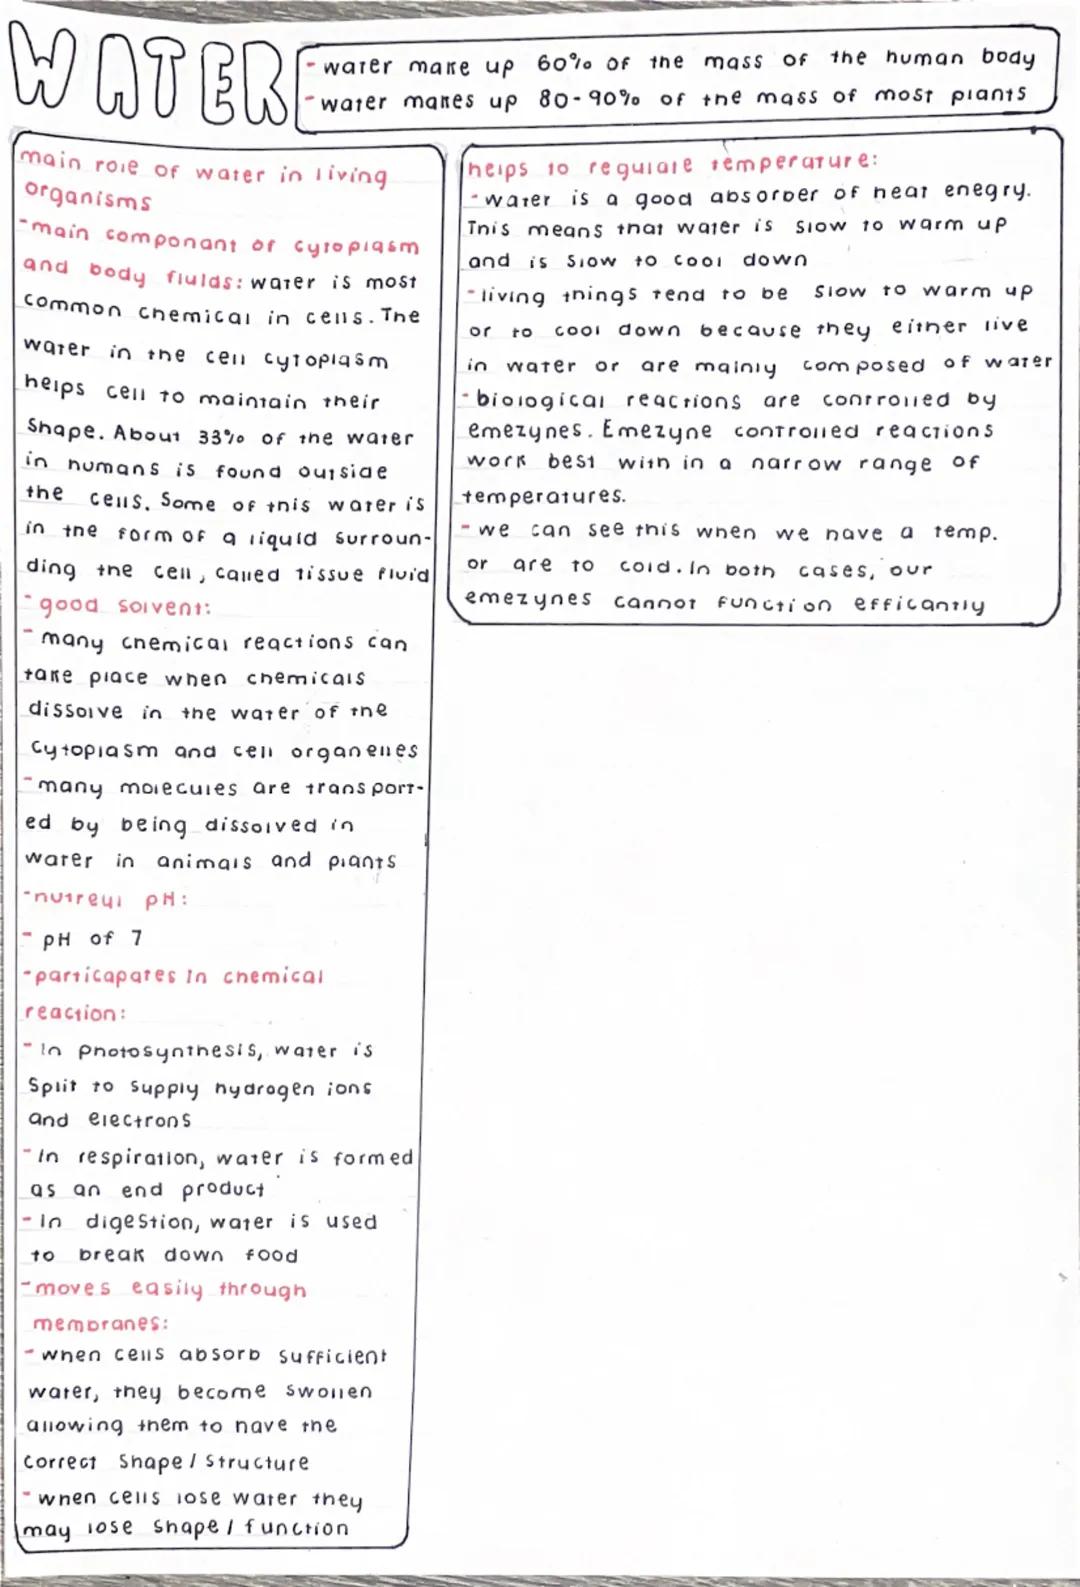 WATER
- water make up 60% of the mass of the human body
- water makes up 80-90% of the mass of most plants
main role of water in living
organisms
- main componant of cytoplasm
and body fluids: water is most
common chemical in cells. The
water in the cell cytoplasm
helps cell to maintain their
shape. About 33% of the water
in humans is found outside
the cells. Some of this water is
in the form of a liquid surroun-
ding the cell, called tissue fluid
- good solvent:
- many chemical reactions can
take place when chemicals
dissolve in the water of the
cytoplasm and cell organelles
- many molecules are transport-
ed by being dissolved in
water in animals and plants
- nutreul pH:
- pH of 7
- particapates in chemical
reaction:
- In photosynthesis, water is
split to supply hydrogen ions
and electrons
- In respiration, water is formed
as an end product
- In digestion, water is used
to break down food
- moves easily through
membranes:
- when cells absorb sufficient
water, they become swollen
allowing them to have the
correct shape / structure
- when cells lose water they
may lose shape / function
helps to regulate temperature:
- water is a good absorber of heat enegry.
This means that water is slow to warm up
and is slow to cool down
- living things tend to be slow to warm up
or to cool down because they either live
in water or are mainly composed of water
- biological reactions are controlled by
emezynes. Emezyne controlled reactions
work best with in a narrow range of
temperatures.
- we can see this when we have a temp.
or are to cold. In both cases, our
emezynes cannot function efficantly